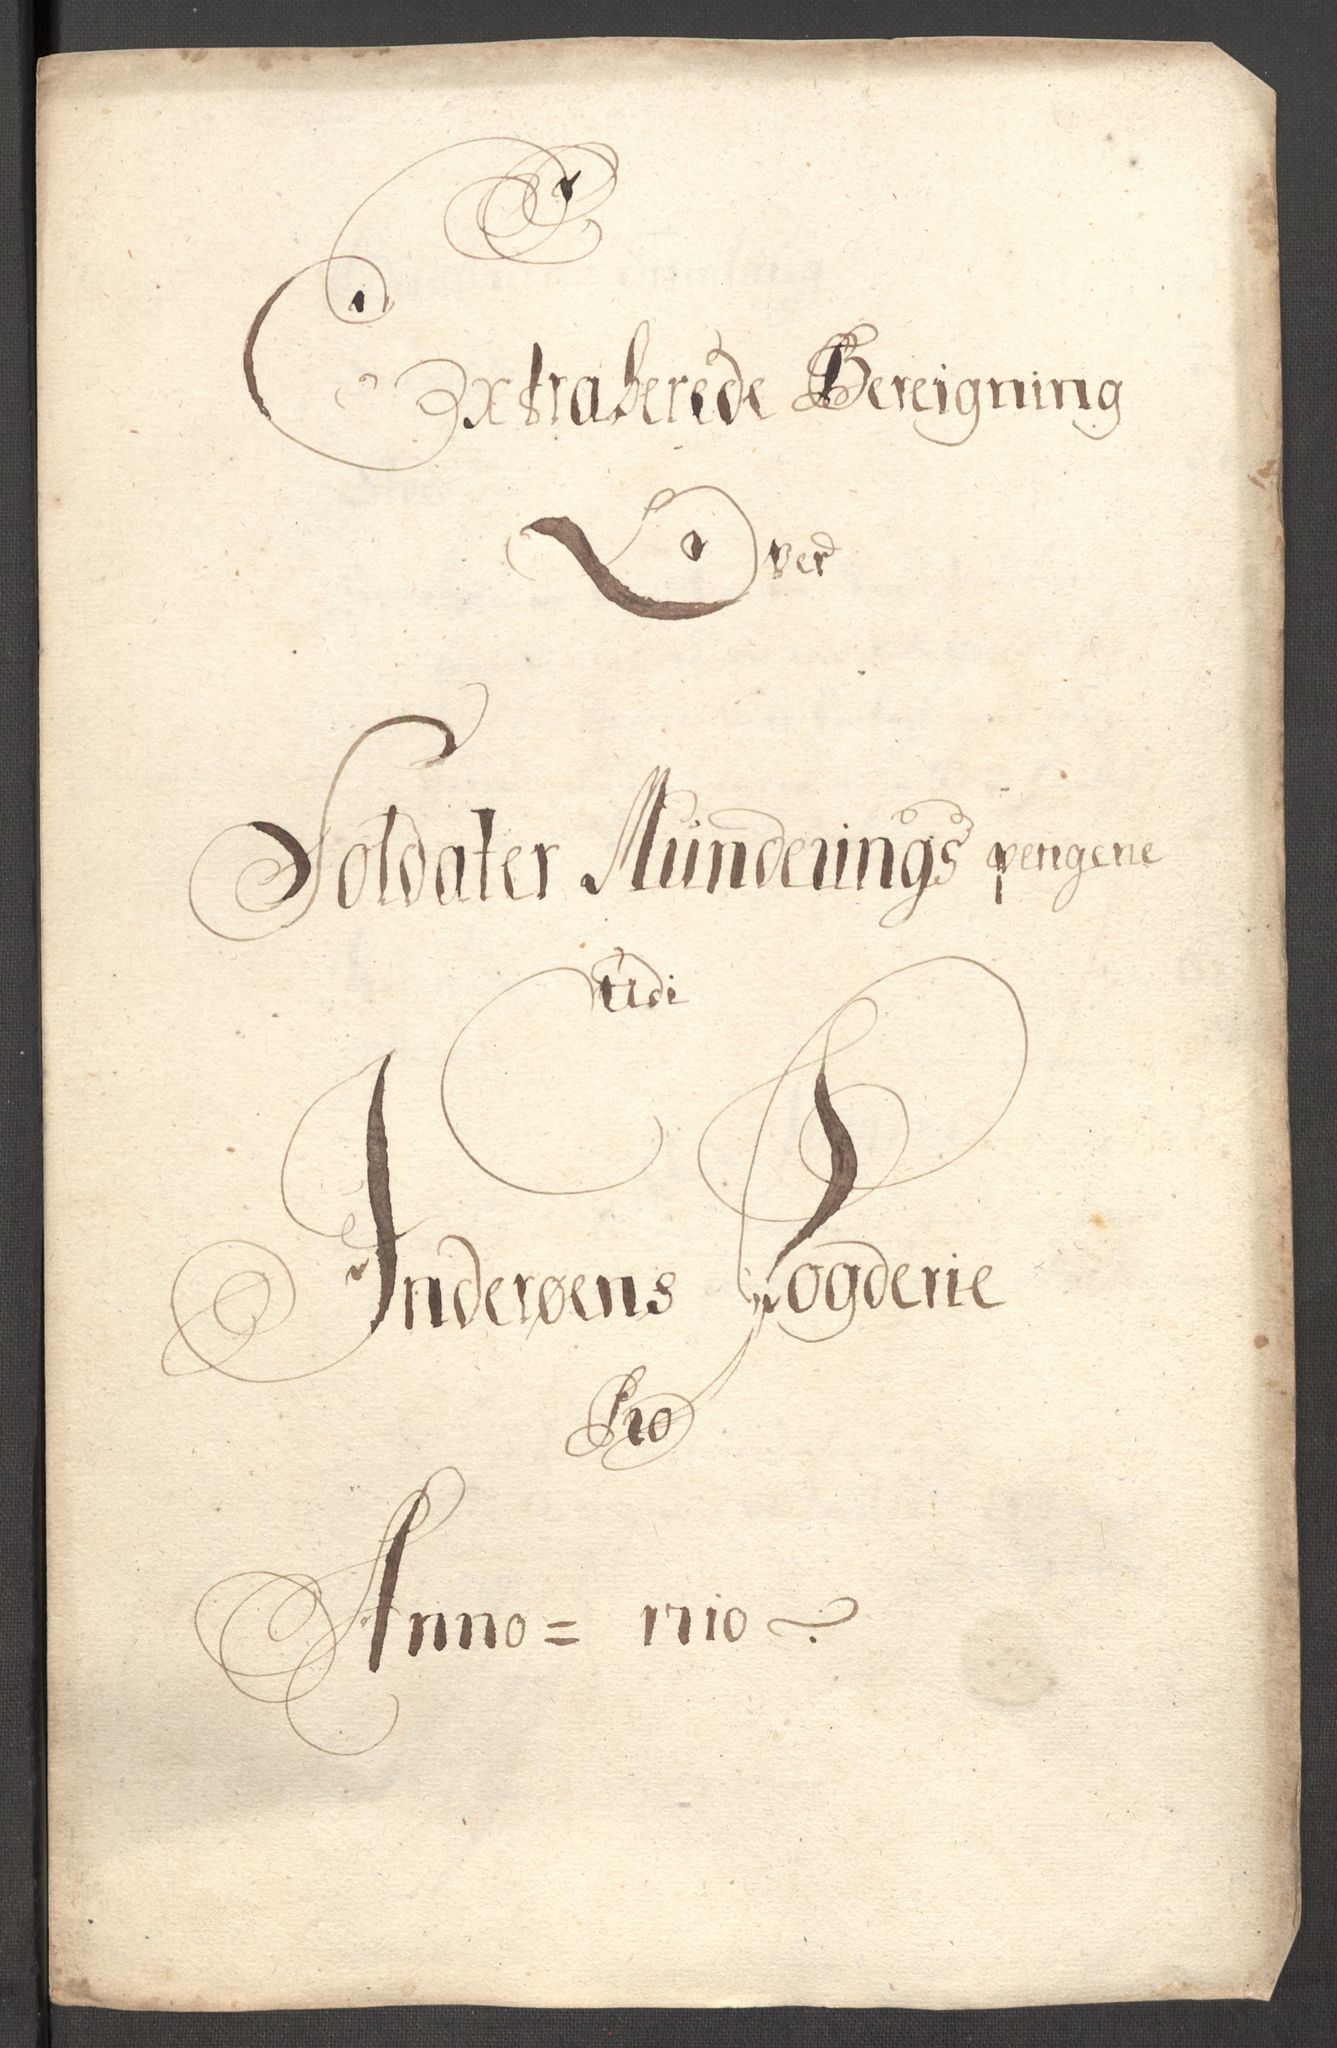 Extraherede Bereigning
Over
Soldater Munderings pengene
udi
Inderøens Fogderie
Pro
Anno = 1710